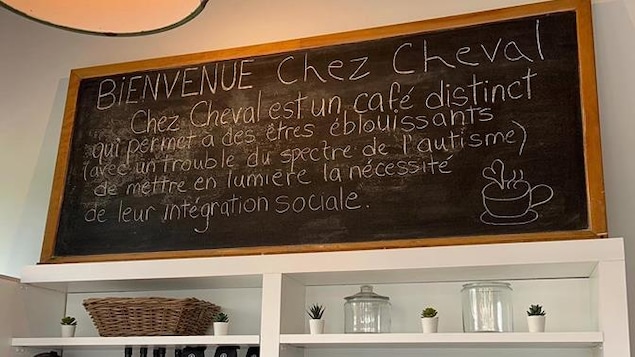 BIENVENUE Chez Cheval
Chez Cheval est un café distinct
qui permet à des êtres éblouissants
(avec un trouble du spectre de l'autisme)
de mettre en lumière la nécessité
de leur intégration sociale.